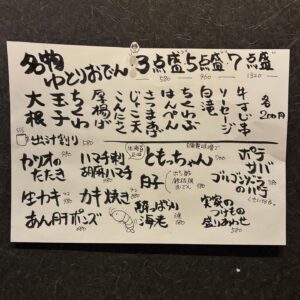 名物
ゆとりおでん
3点盛 580
5点盛 960
7点盛 1320
大根
玉子
ちくわ
厚揚げ
こんにゃく
じゃこ天
さつま揚げ
はんぺん
ちくわぶ
白滝
ソーセージ
牛すじ串
各200円
出汁割り
カツオのたたき
ハマチ刺
胡麻ハマチ
ともっちゃん
生カキ
カキ焼き
あん肝ポンズ
酔っぱらい海老
実家のつけもの盛りあわせ
580
ポテサバ
ゴルゴンゾーラの